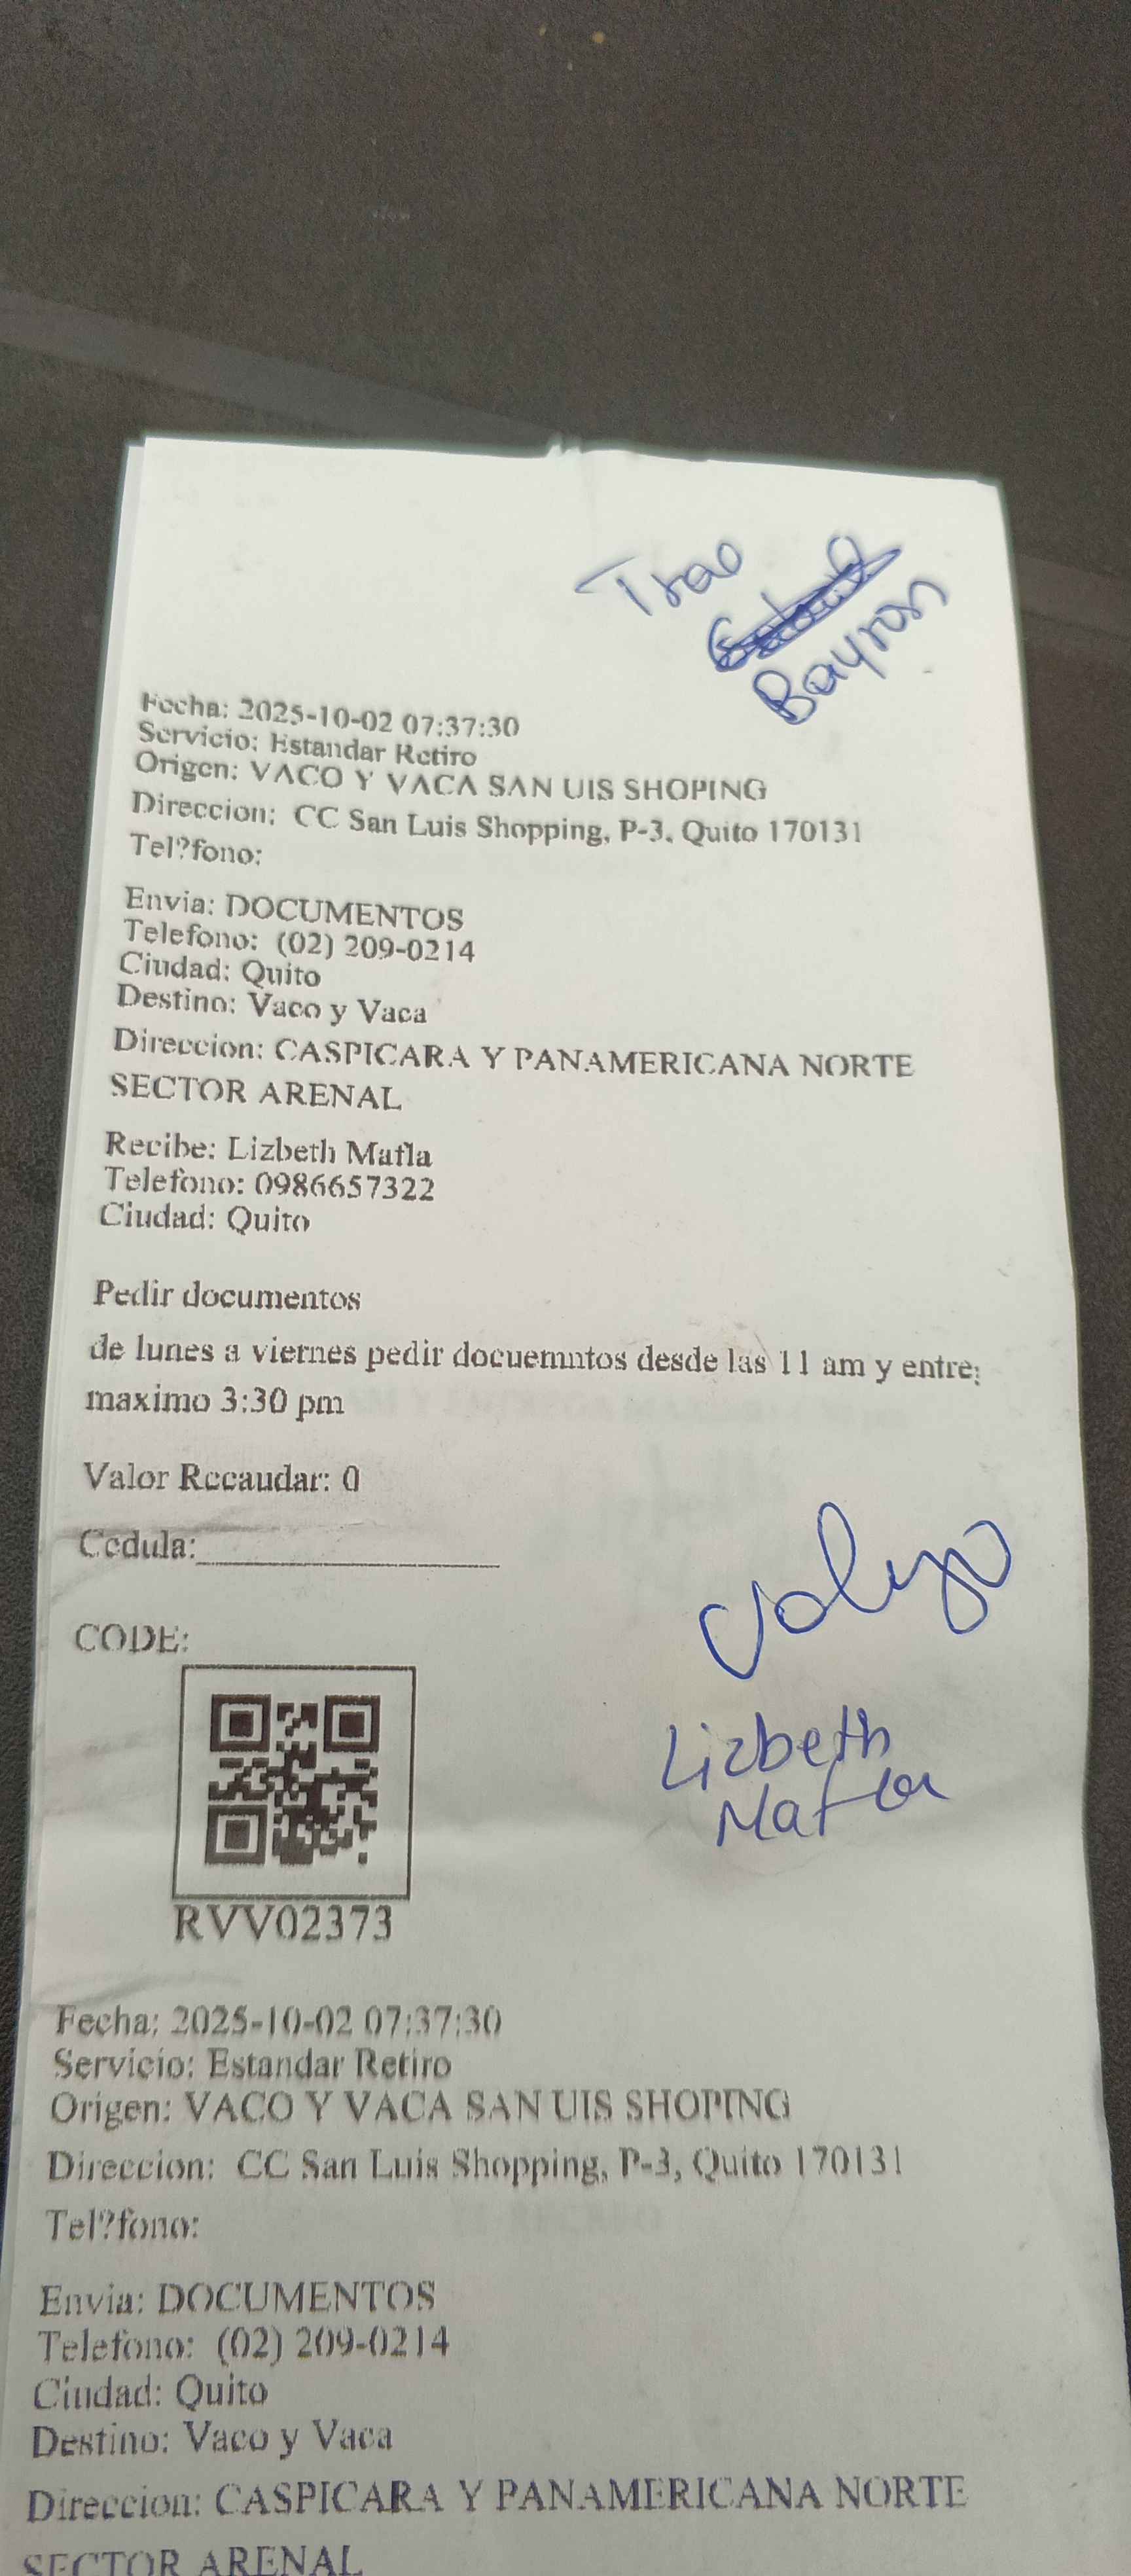 Trae
Bayron
Fecha: 2025-10-02 07:37:30
Servicio: Estandar Retiro
Origen: VACO Y VACA SAN UIS SHOPING
Direccion: CC San Luis Shopping, P-3, Quito 170131
Tel?fono:
Envia: DOCUMENTOS
Telefono: (02) 209-0214
Ciudad: Quito
Destino: Vaco y Vaca
Direccion: CASPICARA Y PANAMERICANA NORTE
SECTOR ARENAL
Recibe: Lizbeth Mafla
Telefono: 0986657322
Ciudad: Quito
Pedir documentos
de lunes a viernes pedir docuemntos desde las 11 am y entre
maximo 3:30 pm
Valor Recaudar: 0
Cedula:
CODE:
Lizbeth
Mafla
RVV02373
Fecha: 2025-10-02 07:37:30
Servicio: Estandar Retiro
Origen: VACO Y VACA SAN UIS SHOPING
Direccion: CC San Luis Shopping, P-3, Quito 170131
Tel?fono:
Envia: DOCUMENTOS
Telefono: (02) 209-0214
Ciudad: Quito
Destino: Vaco y Vaca
Direccion: CASPICARA Y PANAMERICANA NORTE
SECTOR ARENAL